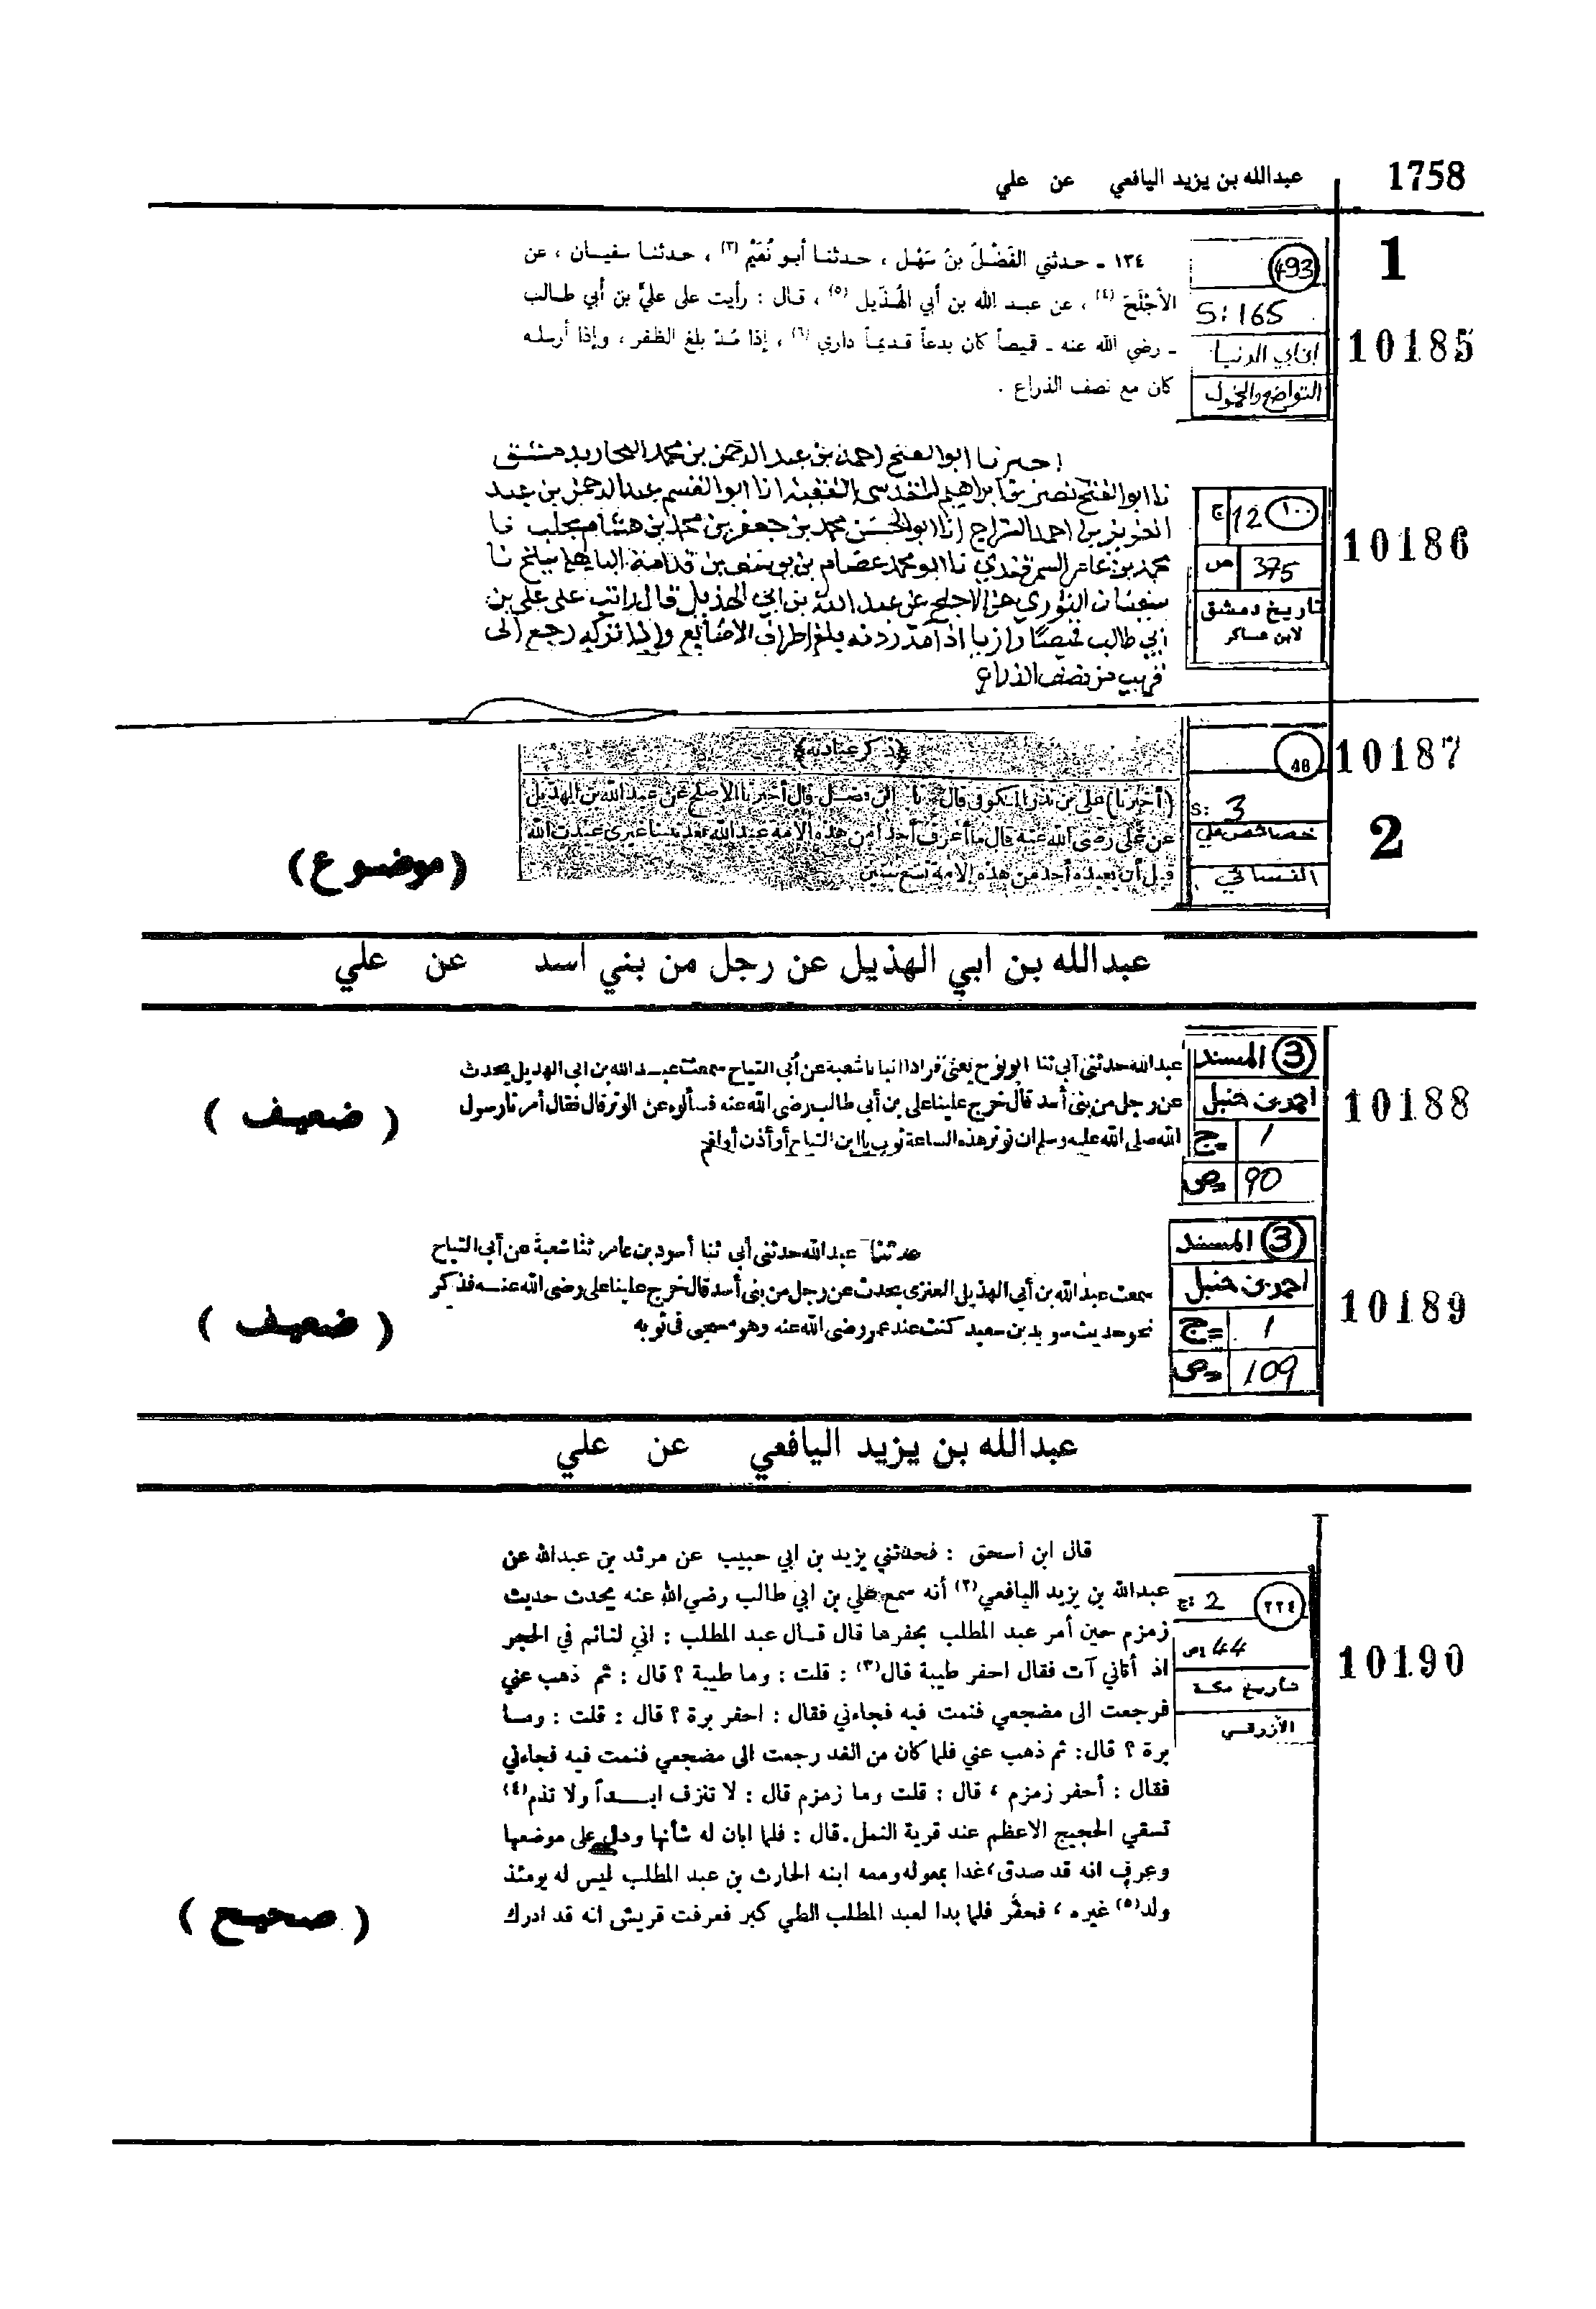 1758
عبدالله بن يزيد اليافعي عن علي
1
10185
493
S: 165
ابن ابي الدنيا
التواضع والخمول
١٣٤ - حدثني الفَضْلُ بنُ سَهْل ، حدثنا أبو نُعَيْم (٣) ، حدثنا سفيان ، عن
الأجْلَحَ (٤) ، عن عبد الله بن أبي الهُذَيل (٥) ، قال : رأيت على عليِّ بن أبي طالب
- رضي الله عنه - قميصاً كان بدعاً قديماً داري (٦) ، إذا مُدّ بلغ الظفر ، وإذا أرسله
كان مع نصف الذراع .
10186
١٠٠
12 ج
375 ص
تاريخ دمشق
لابن عساكر
اخبرنا ابو الفتح احمد بن عبد الرحمن بن محمد المحار بدمشق
نا ابو الفتح نصر بن ابراهيم المقدسي الفقيه انا ابو القسم عبد الرحمن بن عبد
العزيز بن احمد السراج انا ابو الحسن محمد بن جعفر بن محمد بن هشام بحلب نا
محمد بن عامر السمرقندي نا ابو محمد عصام بن يوسف بن قدامة الباهلي ببلخ نا
سفيان الثوري عن الاجلح عن عبد الله بن ابي الهذيل قال رايت على علي بن
ابي طالب قميصا رازيا اذا مد ردنه بلغ اطراف الاصابع واذا تركه رجع الى
قريب من نصف الذراع
10187
48
S: 3
2
خصائص علي
النسائي
﴿ذكر عبادته﴾
(أخبرنا) علي بن نذر الكوفي قال ابن فضيل قال أخبرنا الاصلح عن عبد الله بن الهذيل
عن علي رضى الله عنه قال ما أعرف أحدا من هذه الامة عبد الله بعد نبينا غيرى عبدت الله
قبل أن يعبده أحد من هذه الامة تسع سنين
(موضوع)
عبدالله بن ابي الهذيل عن رجل من بني اسد عن علي
10188
3 المسند
احمد بن حنبل
ج= 1
ص= 90
عبد الله حدثنى أبى ثنا أبو نوح يعنى قراد انبأنا شعبة عن أبى التياح سمعت عبد الله بن ابى الهذيل يحدث
عن رجل من بنى أسد قال خرج علينا على بن أبى طالب رضى الله عنه فسألوه عن الوتر قال فقال أمرنا رسول
الله صلى الله عليه وسلم ان نوتر هذه الساعة ثوب يا ابن التياح أو أذن أو أقم
( ضعيف )
10189
3 المسند
احمد بن حنبل
ج= 1
ص= 109
حدثنا عبد الله حدثنى أبى ثنا أسود بن عامر ثنا شعبة عن أبى التياح
سمعت عبد الله بن أبي الهذيل العنزى يحدث عن رجل من بنى أسد قال خرج علينا على رضى الله عنه فذكر
نحو حديث سويد بن سعيد كنت عند عمر رضى الله عنه وهو مسجى فى ثوبه
( ضعيف )
عبدالله بن يزيد اليافعي عن علي
10190
٢٢٤
ج: 2
ص: 44
تاريخ مكة
الأزرقي
قال ابن اسحق : فحدثني يزيد بن ابي حبيب عن مرثد بن عبدالله عن
عبدالله بن يزيد اليافعي(٢) أنه سمع علي بن ابي طالب رضي الله عنه يحدث حديث
زمزم حين أمر عبد المطلب بحفرها قال قال عبد المطلب : اني لنائم في الحجر
اذ أتاني آت فقال احفر طيبة قال(٣) : قلت : وما طيبة ؟ قال : ثم ذهب عني
فرجعت الى مضجعي فنمت فيه فجاءني فقال : احفر برة ؟ قال : قلت : وما
برة ؟ قال: ثم ذهب عني فلما كان من الغد رجعت الى مضجعي فنمت فيه فجاءني
فقال : أحفر زمزم ، قال : قلت وما زمزم قال : لا تنزف ابداً ولا تذم(٤)
تسقي الحجيج الاعظم عند قرية النمل. قال : فلما ابان له شأنها ودل على موضعها
وعرف انه قد صدق، غدا بمعوله ومعه ابنه الحارث بن عبد المطلب ليس له يومئذ
ولد(٥) غيره ، فحفر فلما بدا لعبد المطلب الطي كبر فعرفت قريش انه قد ادرك
( صحيح )